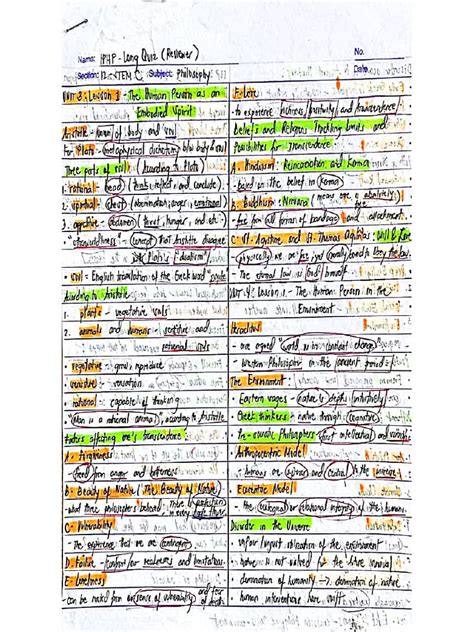 Name: IPHP - Long Quiz (Reviewer)
No.
Section: 12-STEM C Subject: Philosophy
Date:
UNIT 3: Lesson 3 - The Human Person as an
Embodied Spirit
Aristotle - union of body and soul
For Plato - metaphysical dichotomy b/w body & soul
Three parts of soul: (According to Plato)
1. rational - head (thinks, reflects, and conclude).
2. spiritual - chest (abomination, anger, emotional)
3. appetitive - abdomen (thirst, hunger, and etc.)
concept that Aristotle disagree
Plato's "dualism"
soul = English translation of the Greek word "psyche"
According to Aristotle
1. plants - vegetative souls
2. animals and humans - sensitive and
rational souls
vegetative - grow, reproduce
sensitive - sensation
rational - capable of thinking
"Man is a rational animal", according to Aristotle
Factors affecting one's transcendence:
A - Forgiveness
freed from anger and bitterness
B - Beauty of Nature (The Beauty of Nature)
perfection in every single thing
C - Vulnerability
- The experience that we are contingent
D. Failure - confront our weakness and limitations
E - Loneliness
- can be rooted from sense of vulnerability and fear
of death
F. Love
- to experience richness, positivity, and transcendence
Beliefs and Religious Tracking Limits and
Possibilities for Transcendence:
A. Hinduism: Reincarnation and Karma
- Based in the belief in Karma
B. Buddhism: Nirvana means one is absolutely
free from all forms of bondage and attachment.
C. St. Agustine and St. Thomas Aquinas: Will & Love
- physically we are free yet morally bound to obey the law.
- The eternal law is God himself
UNIT 4: Lesson 1 - The Human Person in the
Environment
Heraclitus
- one argued "world is in constant change"
- Western Philosopher in the ancient period
The Environment
Eastern sages - nature's depths intuitively
Greek thinkers - nature through cognitive
Pre-socratic Philosophers
Anthropocentric Model
- humans are superior and central to the universe
Ecocentric Model
- the ecological or relational integrity of the humans
Disorder in the Universe
- unfair/unjust utilization of the environment
- nature not valued for the sheer survival
- domination of humanity → domination of nature
- human interventions here